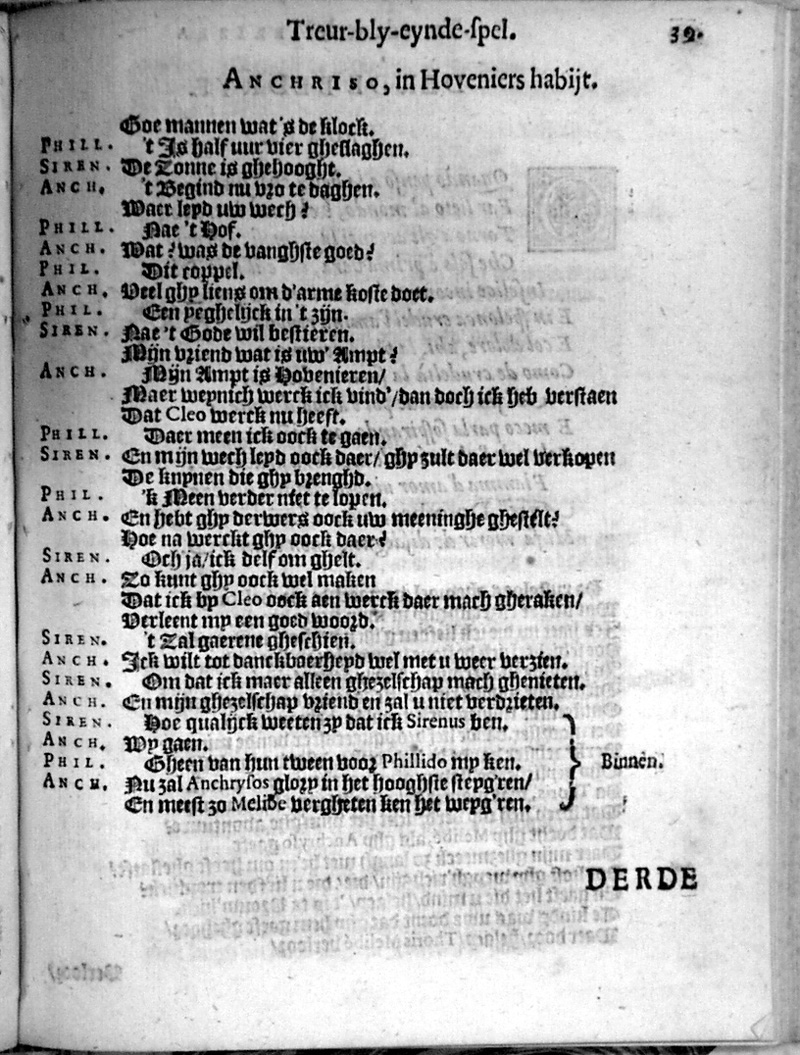 Treur-bly-eynde-ſpel. 39.
ANCHRISO, in Hoveniers habijt.
Goe mannen wat 's de klock.
PHILL. 't Is half uur vier gheslaghen.
SIREN. De Zonne is ghehooght.
ANCH. 't Begind nu vro te daghen.
Waer leyd uw wech?
PHILL. Nae 't Hof.
ANCH. Wat? was de vanghste goed?
PHIL. Dit coppel.
ANCH. Veel ghy liens om d'arme koste doet.
PHIL. Een yeghelijck in 't zijn.
SIREN. Nae 't Gode wil bestieren.
Mijn vriend wat is uw' Ampt?
ANCH. Mijn Ampt is Hovenieren/
Maer weynich werck ick vind'/dan doch ick heb verstaen
Dat Cleo werck nu heeft.
PHILL. Daer meen ick oock te gaen.
SIREN. En mijn wech leyd oock daer/ ghy zult daer wel verkopen
De knynen die ghy brenghd.
PHIL. 'k Meen verder niet te lopen.
ANCH. En hebt ghy derwers oock uw meeninghe ghestelt?
Hoe na werckt ghy oock daer?
SIREN. Och ja/ick delf om ghelt.
ANCH. Zo kunt ghy oock wel maken
Dat ick by Cleo oock aen werck daer mach gheraken/
Verleent my een goed woord.
SIREN. 't Zal gaerene gheschien.
ANCH. Ick wilt tot danckbaerheyd wel met u weer verzien.
SIREN. Om dat ick maer alleen ghezelschap mach ghenieten.
ANCH. En mijn ghezelschap vriend en zal u niet verdrieten.
SIREN. Hoe qualijck weeten zy dat ick Sirenus ben.
ANCH. Wy gaen.
PHIL. Gheen van hun tween voor Phillido my ken. Binnen.
ANCH. Nu zal Anchrysos glory in het hooghste steyg'ren/
En meest zo Melide vergheten ken het weyg'ren.
DERDE